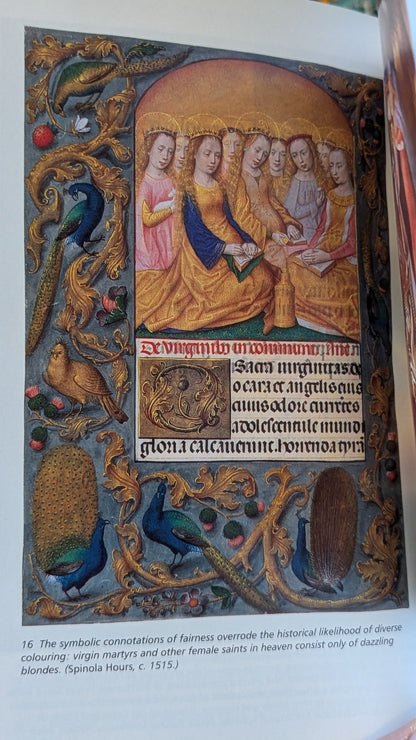 De Virginib in
Sacra uirginitas de
o cara et angelis eius
cuius odore currẽtes
adolescentule mundi
gloria calcauerunt. horrenda
16 The symbolic connotations of fairness overrode the historical likelihood of diverse
colouring: virgin martyrs and other female saints in heaven consist only of dazzling
blondes. (Spinola Hours, c. 1515.)